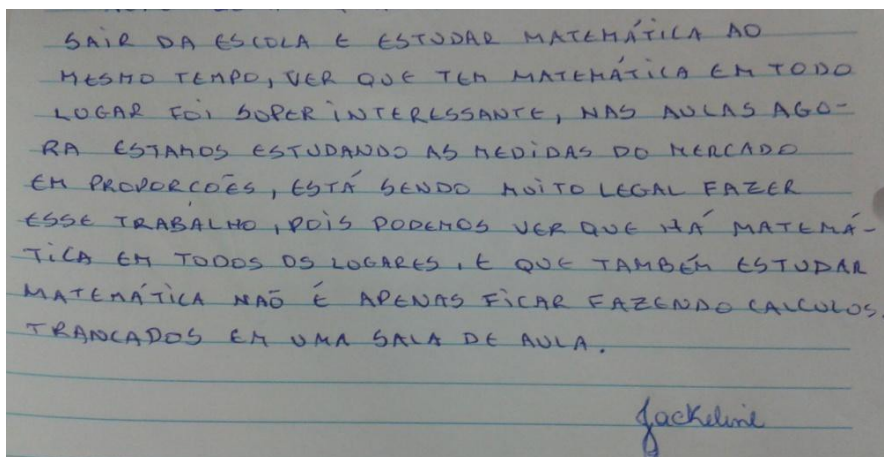 SAIR DA ESCOLA E ESTUDAR MATEMÁTICA AO
MESMO TEMPO, VER QUE TEM MATEMÁTICA EM TODO
LUGAR FOI SUPER INTERESSANTE, NAS AULAS AGO-
RA ESTAMOS ESTUDANDO AS MEDIDAS DO MERCADO
EM PROPORCÕES, ESTÁ SENDO MUITO LEGAL FAZER
ESSE TRABALHO, POIS PODEMOS VER QUE HÁ MATEMÁ-
TICA EM TODOS OS LUGARES, E QUE TAMBÉM ESTUDAR
MATEMÁTICA NAÕ É APENAS FICAR FAZENDO CALCULOS,
TRANCADOS EM UMA SALA DE AULA.
Jackeline